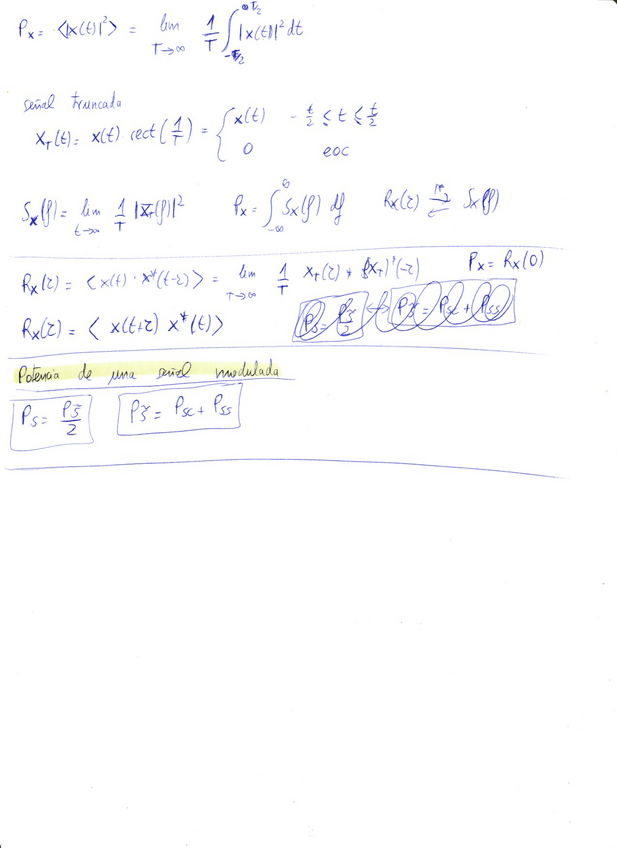 Px = <|x(t)|²> = lim T→∞ 1/T ∫_{-T/2}^{∞ T/2} |x(t)|² dt
señal truncada
X_T(t) = x(t) rect(1/T) = { x(t) -t/2 ≤ t ≤ t/2
0 eoc
Sx(f) = lim t→∞ 1/T |X_T(f)|² Px = ∫_{-∞}^{∞} Sx(f) df Rx(τ) ⇌ Sx(f)
Rx(τ) = <x(t) · x*(t-τ)> = lim T→∞ 1/T X_T(τ) * (X_T)*(-τ) Px = Rx(0)
Rx(τ) = < x(t+τ) x*(t)> Ps = Ps̃/2 → Ps̃ = Psc + Pss
Potencia de una señal modulada
Ps = Ps̃/2 Ps̃ = Psc + Pss